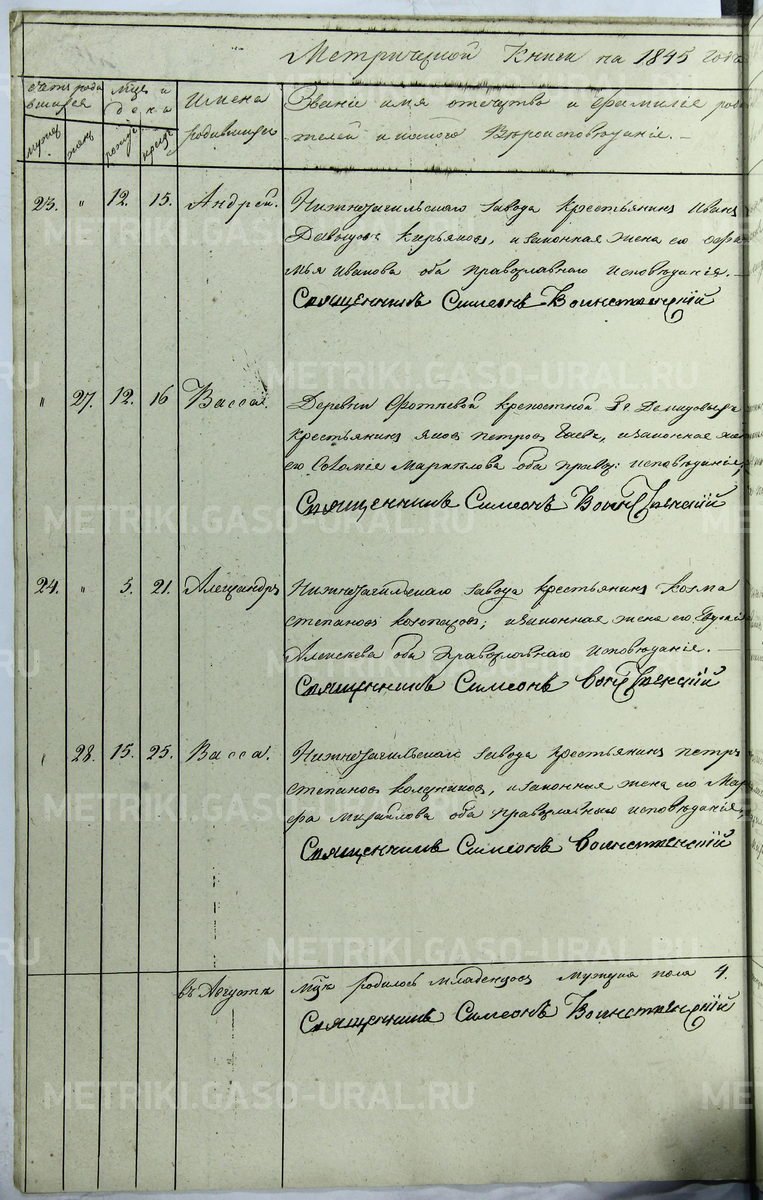 Метрической Книги на 1845 годъ
Мцъ и
дена
Имена
родившихся
Званіе имя отечество и фамиліе роди
телей и какого Вѣроисповѣданіе.
мужск
женс
рожде
креще
23. " 12. 15. Андрей. Нижнетагильскаго завода крестьянинъ Иванъ
Давыдовъ Кирьяновъ, и законная жена его Офи
мья Иванова оба православнаго исповѣданія.
Священникъ Симеонъ Воинственскій
" 27. 12. 16 Васса. Деревни крепостной Гг Демидовыхъ
крестьянинъ Яковъ Петровъ и законная же
его Маркелова оба правос: исповѣданія,
Священникъ Симеонъ Воинственскій
24. " 5. 21. Александръ Нижнетагильскаго завода крестьянинъ Козма
Степановъ и законная жена его
Алексѣева оба православнаго исповѣданіе.
Священникъ Симеонъ Воинственскій
" 28. 15. 25. Васса. Нижнетагильскаго завода крестьянинъ Петръ
Степановъ и законная жена его Мар
фа Михайлова оба православнаго исповѣданія,
Священникъ Симеонъ Воинственскій
въ Августѣ Мцѣ родилось младенцовъ мужеска пола 4.
Священникъ Симеонъ Воинственскій
METRIKI.GASO-URAL.RU